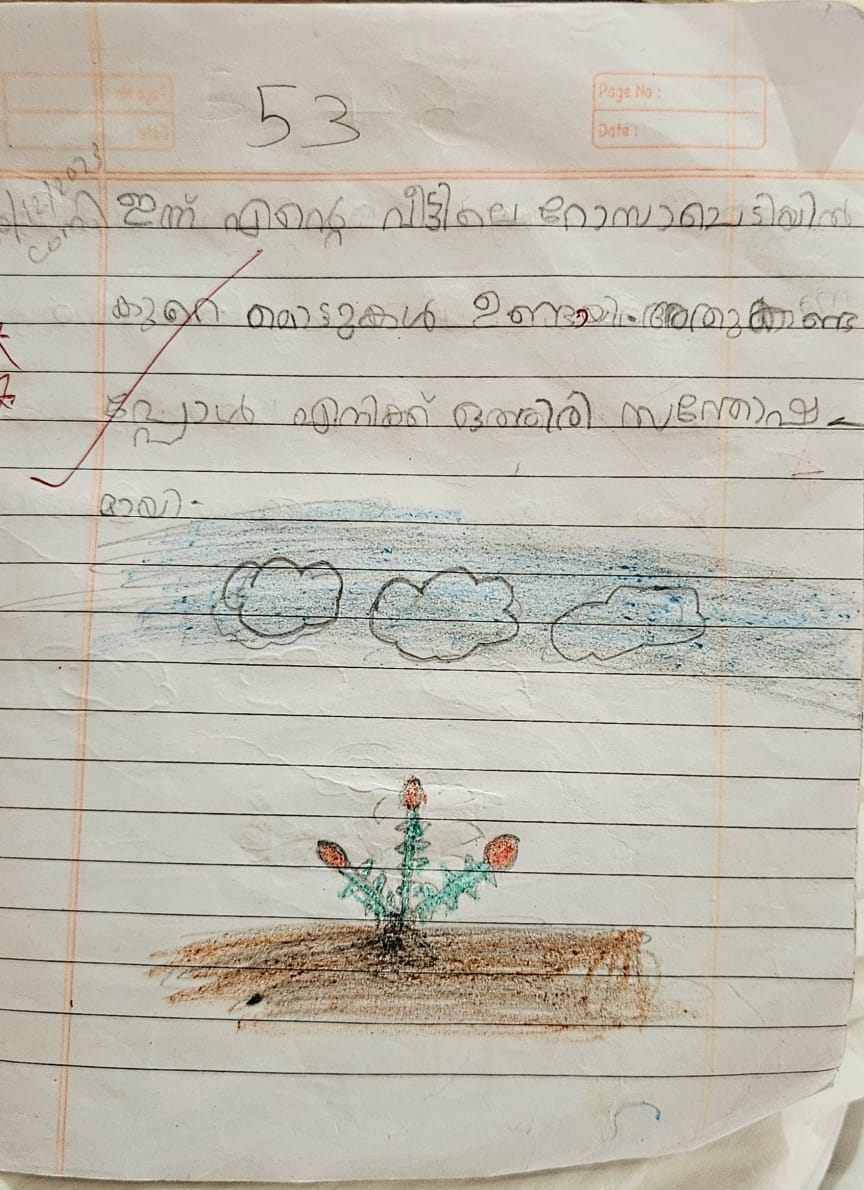 53
Page No :
Date :
/12/2023
ഇന്ന് എന്റെ വീട്ടിലെ റോസാചെടിയിൽ
കുറെ മൊട്ടുകൾ ഉണ്ടായി. അതു കണ്ട
പ്പോൾ എനിക്ക് ഒത്തിരി സന്തോഷ
മായി.